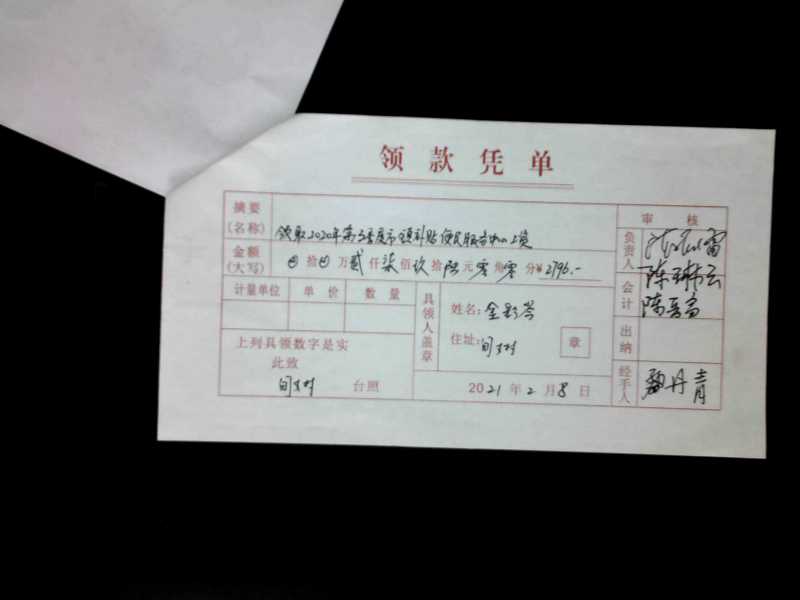 领款凭单
摘要(名称) 领取2020年第3季度市级补贴便民服务中心工资
审核
金额(大写) 拾 万贰仟柒佰玖拾陆元零角零分¥2796.-
负责人
陈琳云
计量单位 单价 数量
具领人盖章
姓名:金彩芩
会计
住址:旬村 章
出纳
上列具领数字是实
此致
旬村 台照
2021年2月8日
经手人 丹青